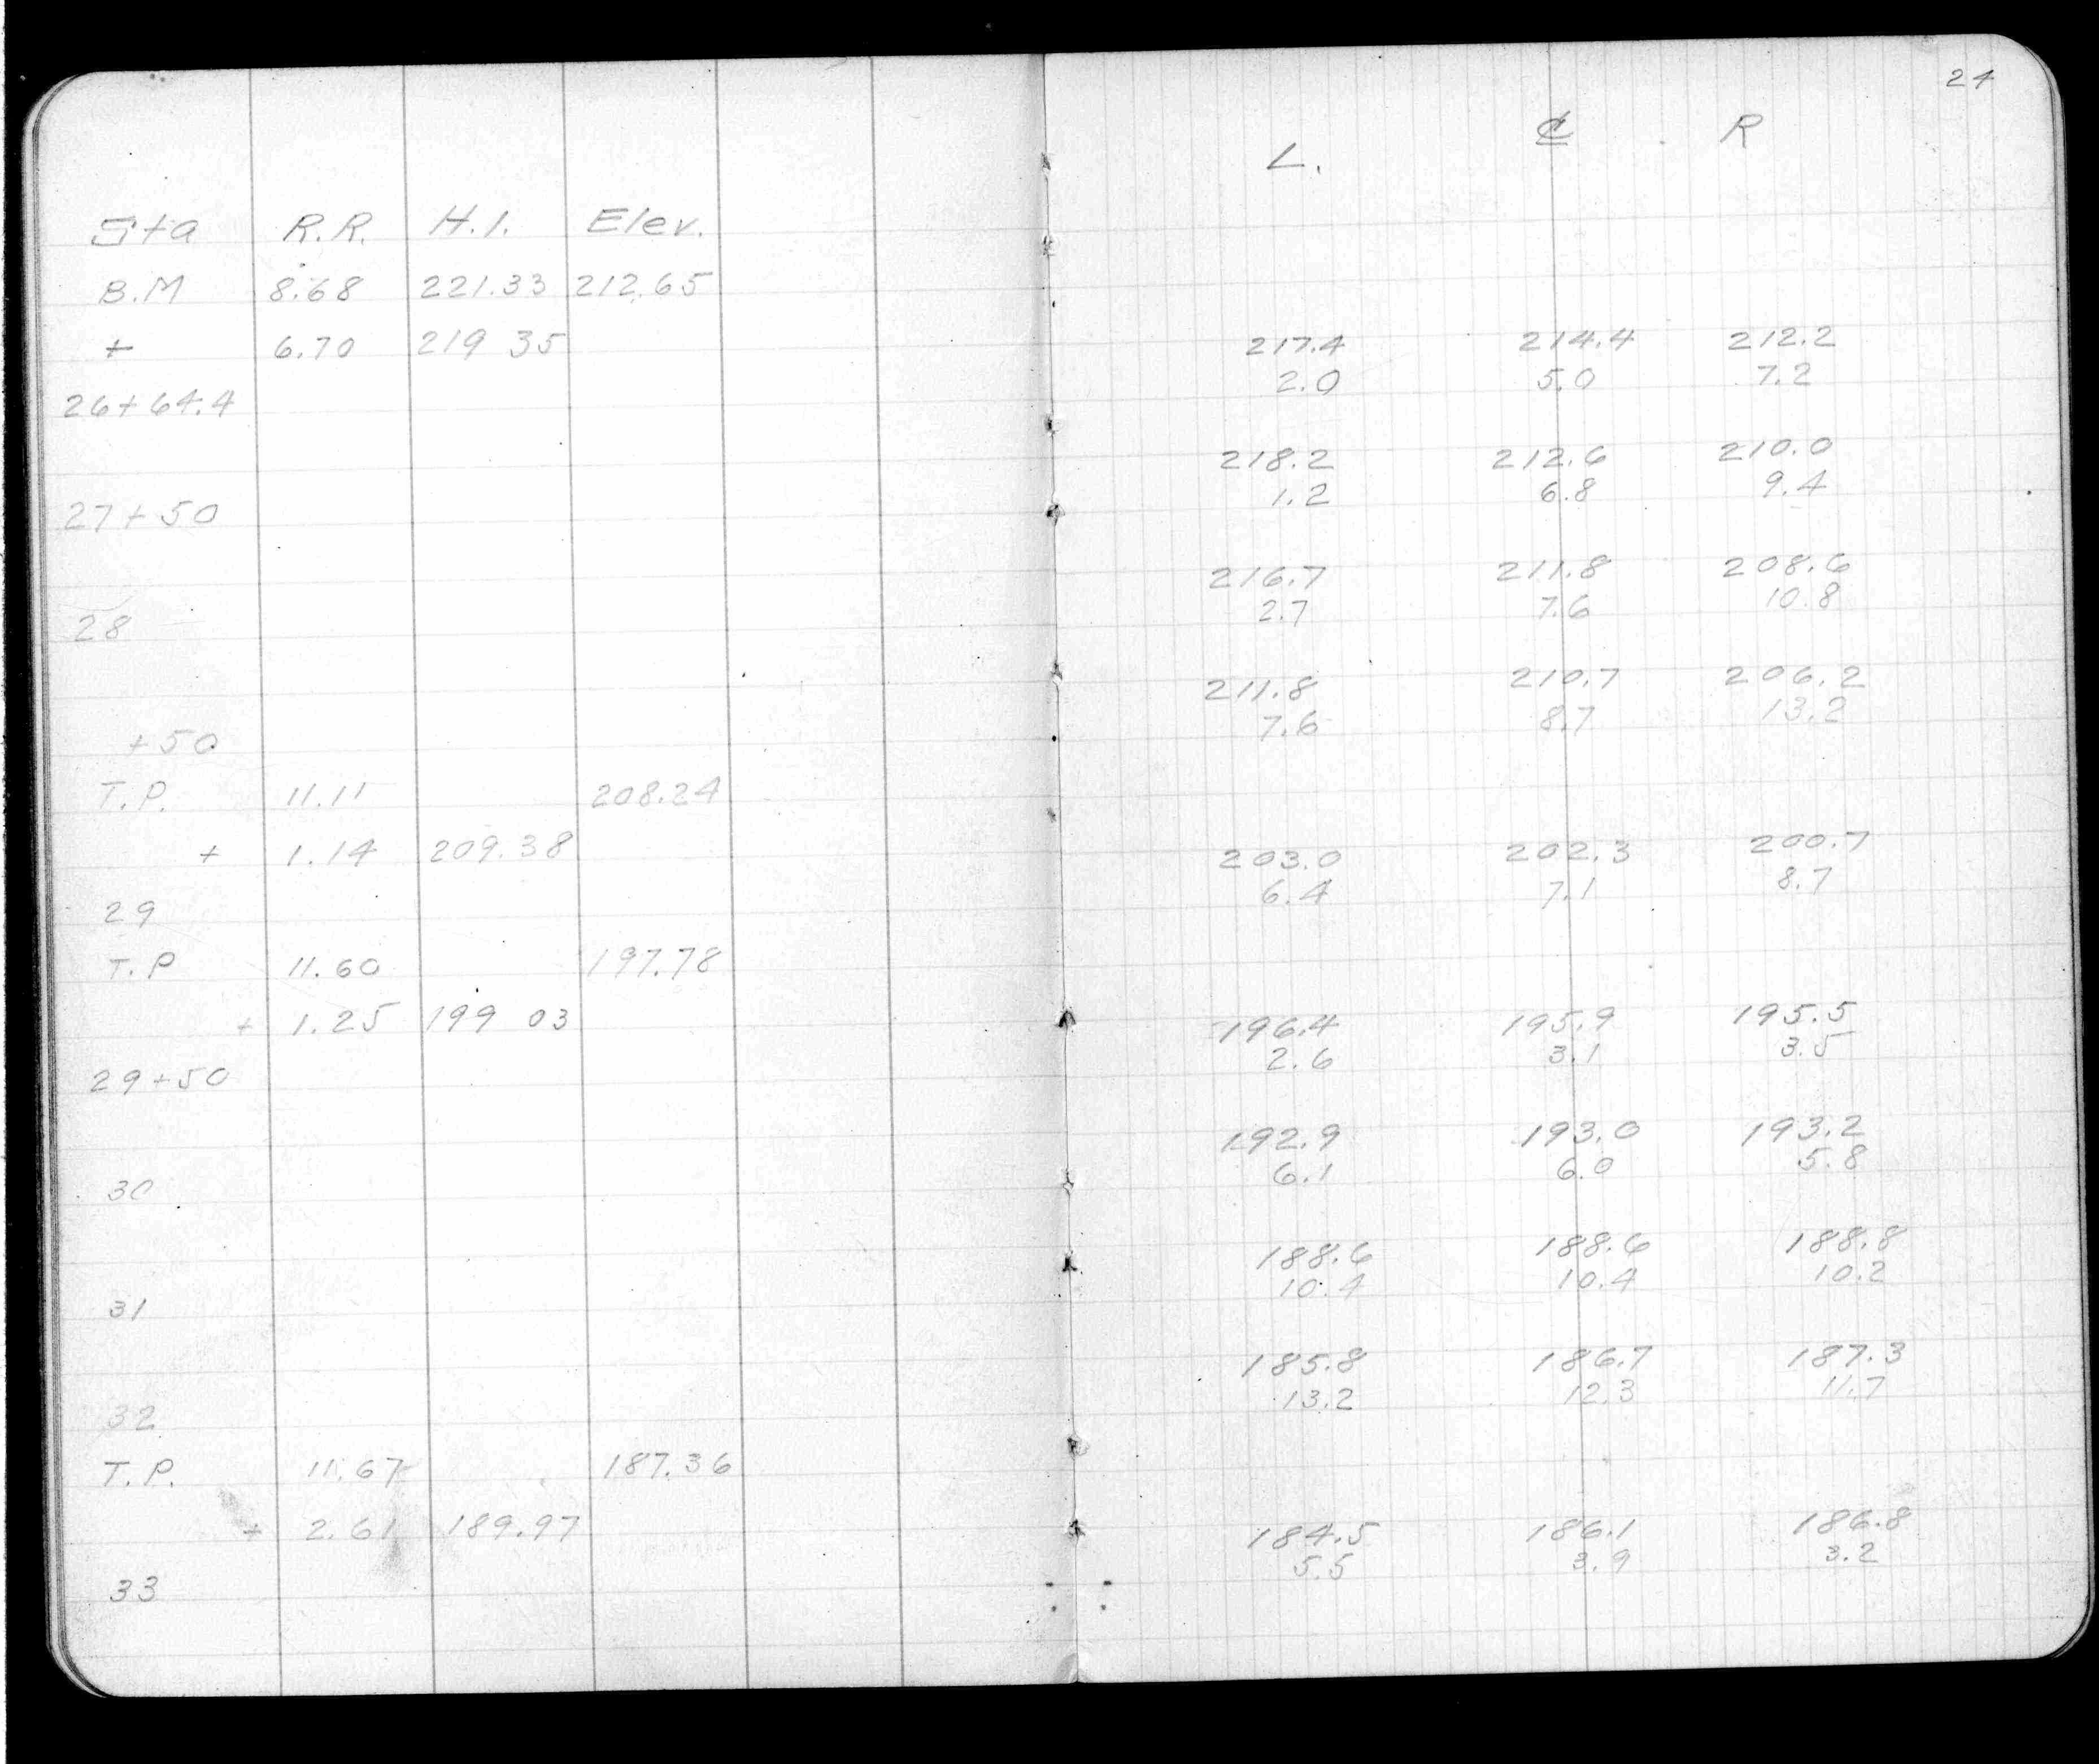 Sta R.R. H.I. Elev.
B.M 8.68 221.33 212.65
+ 6.70 219 35
26+64.4
27+50
28
+50
T.P. 11.11 208.24
+ 1.14 209.38
29
T.P 11.60 197.78
+ 1.25 199 03
29+50
30
31
32
T.P. 11.67 187.36
+ 2.61 189.97
33
24
L. ℄ R
217.4 214.4 212.2
2.0 5.0 7.2
218.2 212.6 210.0
1.2 6.8 9.4
216.7 211.8 208.6
2.7 7.6 10.8
211.8 210.7 206.2
7.6 8.7 13.2
203.0 202.3 200.7
6.4 7.1 8.7
196.4 195.9 195.5
2.6 3.1 3.5
192.9 193.0 193.2
6.1 6.0 5.8
188.6 188.6 188.8
10.4 10.4 10.2
185.8 186.7 187.3
13.2 12.3 11.7
184.5 186.1 186.8
5.5 3.9 3.2